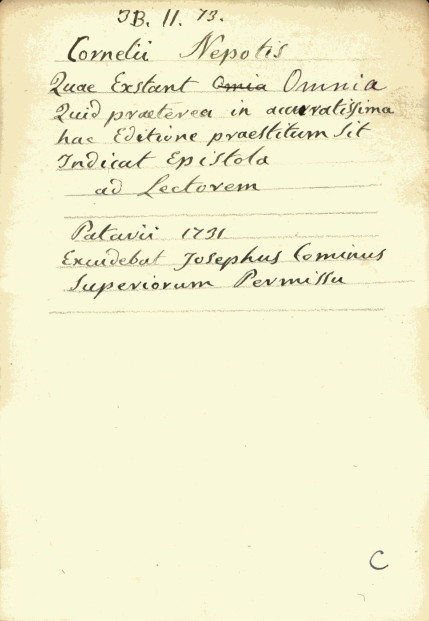 IB. II. 73.
Cornelii Nepotis
Quae Exstant Omia Omnia
Quid praeterea in accuratissima
hac Editione praestitum Sit
Indicat Epistola
ad Lectorem
Patavii 1731
Excudebat Josephus Cominus
Superiorum Permissu
C